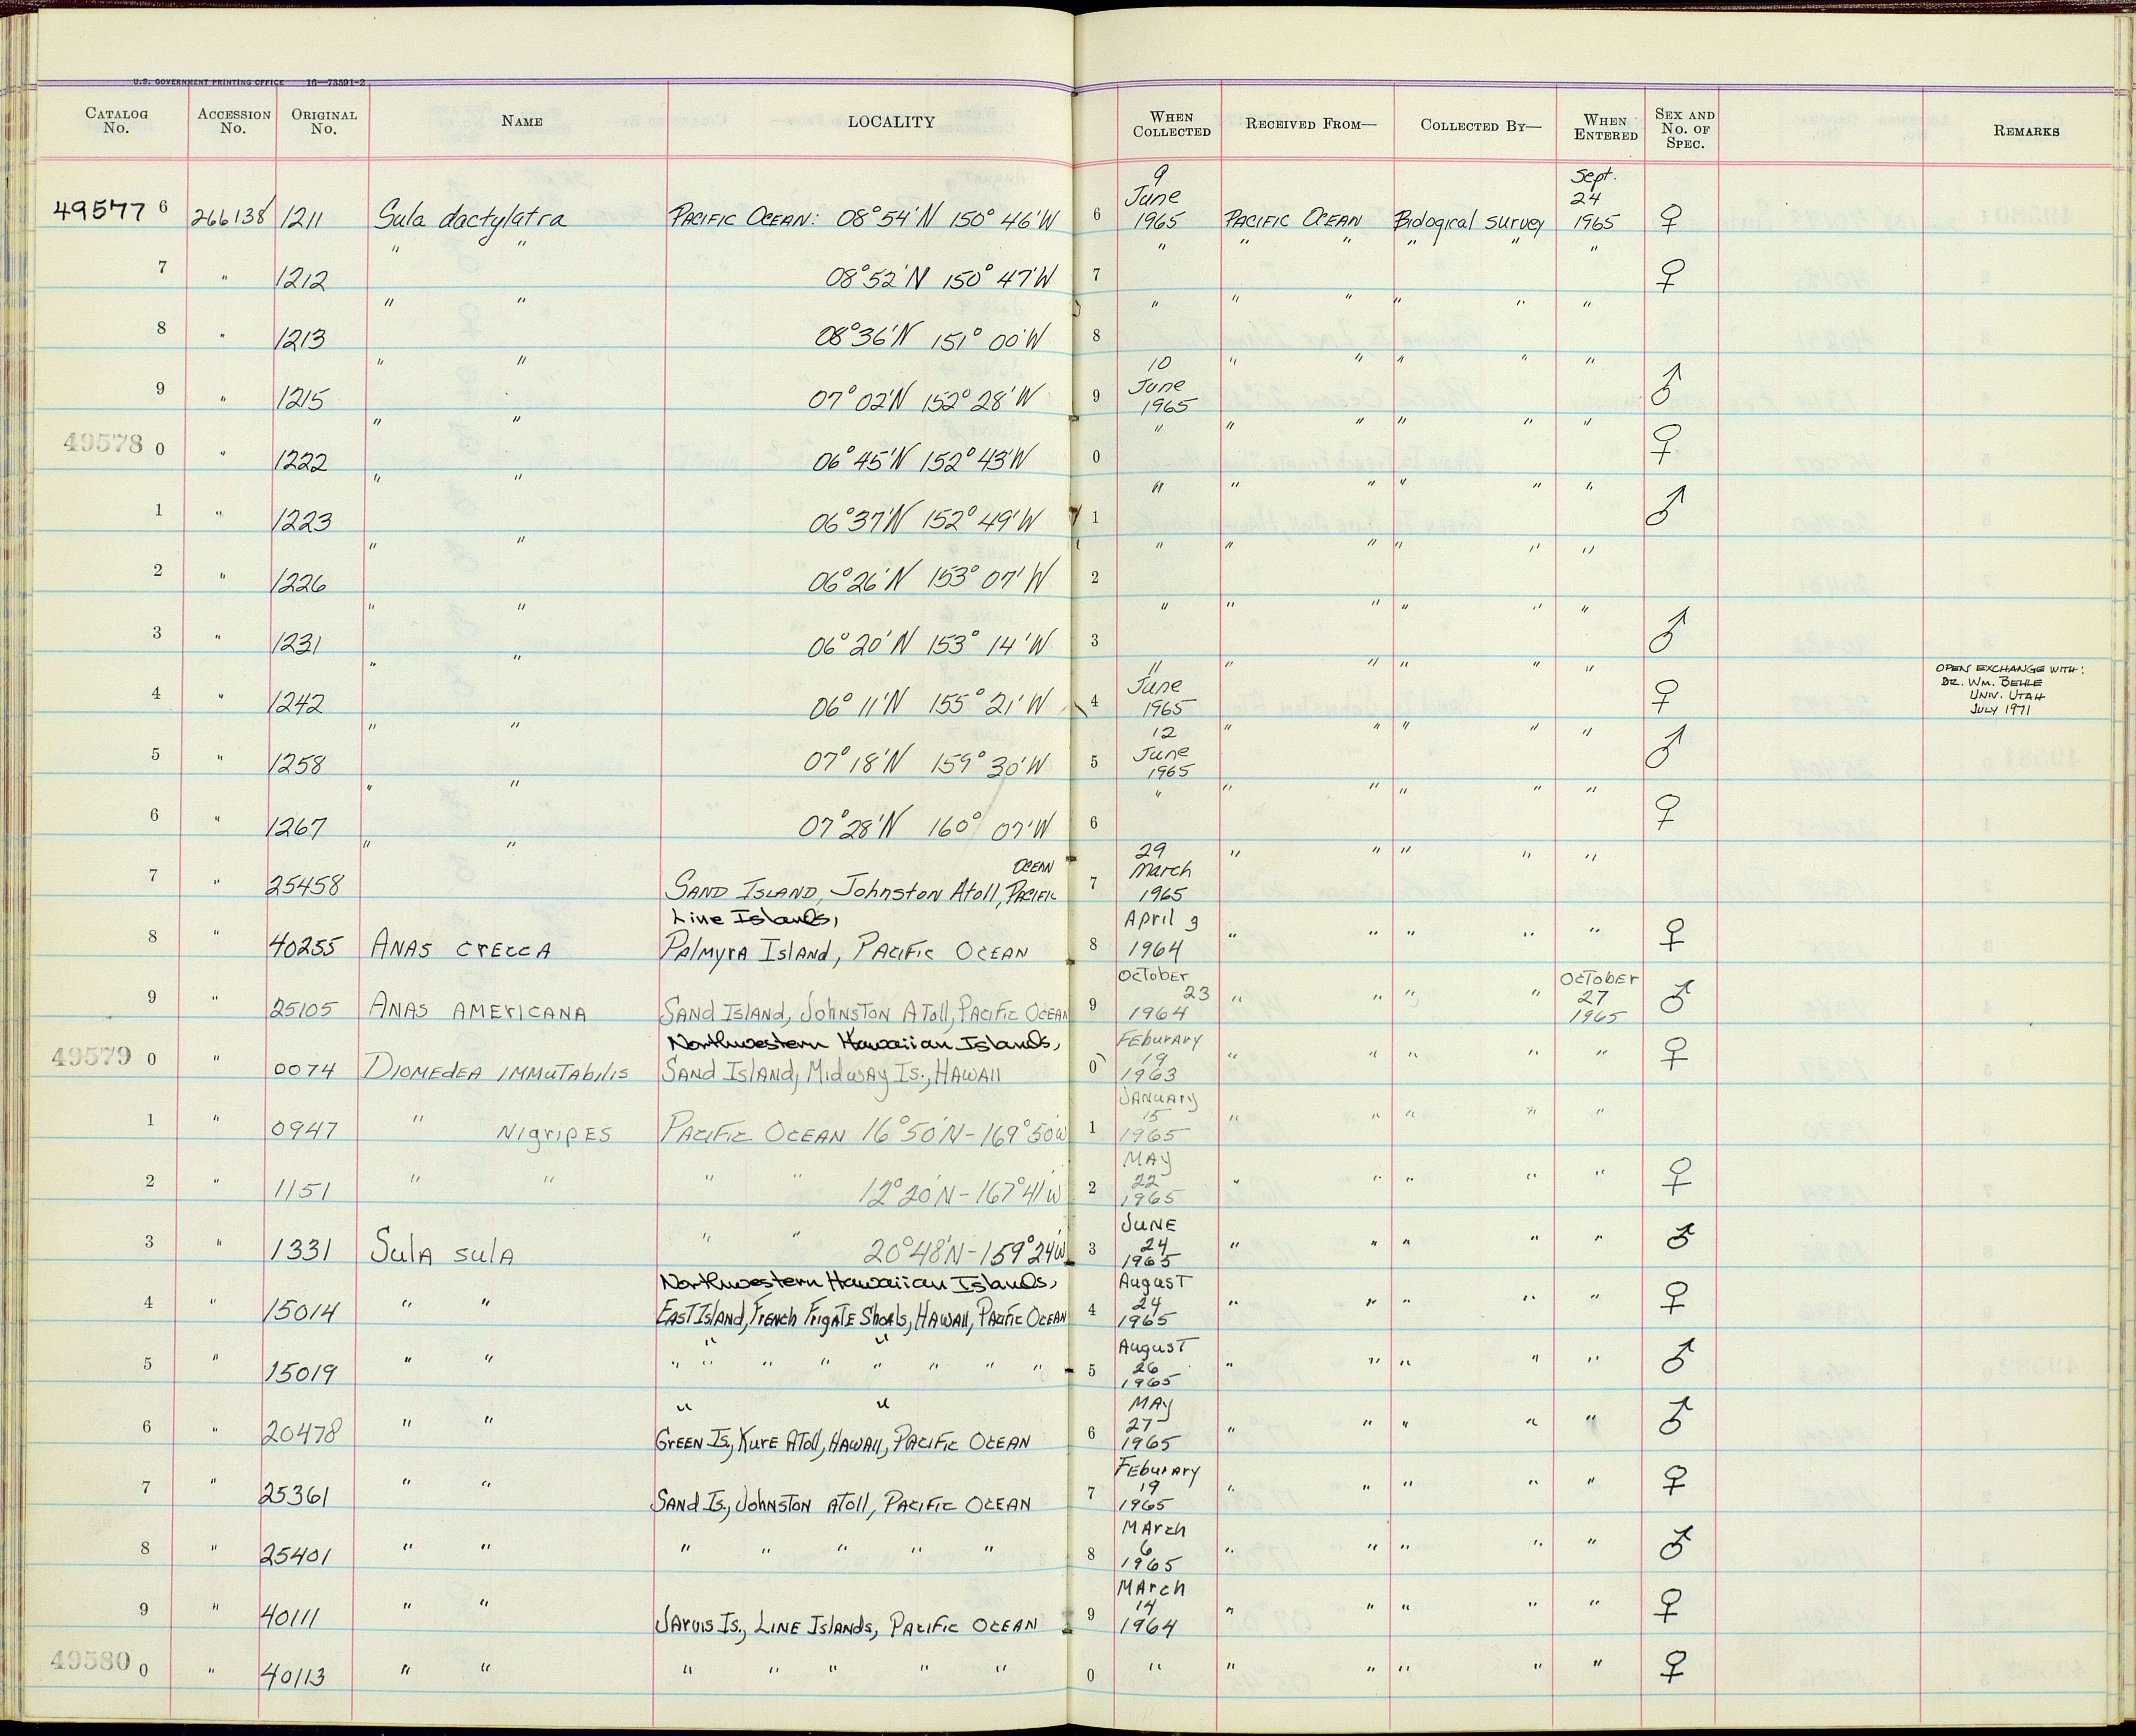 U.S. GOVERNMENT PRINTING OFFICE 16—73591-2
CATALOG No. ACCESSION No. ORIGINAL No. NAME LOCALITY WHEN COLLECTED RECEIVED FROM— COLLECTED BY— WHEN ENTERED SEX AND No. OF SPEC. REMARKS
49577 6 266138 1211 Sula dactylatra PACIFIC OCEAN: 08°54'N 150°46'W 6 9 June 1965 PACIFIC OCEAN Biological Survey Sept. 24 1965 ♀
7 " 1212 " " 08°52'N 150°47'W 7 " " " " " " ♀
8 " 1213 " " 08°36'N 151°00'W 8 " " " " " "
9 " 1215 " " 07°02'N 152°28'W 9 10 June 1965 " " " " " ♂
49578 0 " 1222 " " 06°45'N 152°43'W 0 " " " " " " ♀
1 " 1223 " " 06°37'N 152°49'W 1 " " " " " " ♂
2 " 1226 " " 06°26'N 153°07'W 2 " " " " " "
3 " 1231 " " 06°20'N 153°14'W 3 " " " " " " ♂
4 " 1242 " " 06°11'N 155°21'W 4 11 June 1965 " " " " " ♀ OPEN EXCHANGE WITH: DR. WM. BEHLE UNIV. UTAH JULY 1971
5 " 1258 " " 07°18'N 159°30'W 5 12 June 1965 " " " " " ♂
6 " 1267 " " 07°28'N 160°07'W 6 " " " " " " ♀
7 " 25458 " " SAND ISLAND, Johnston Atoll, PACIFIC OCEAN 7 29 March 1965 " " " " "
8 " 40255 ANAS CRECCA Line Islands, Palmyra Island, PACIFIC OCEAN 8 April 3 1964 " " " " " ♀
9 " 25105 ANAS AMERICANA SAND ISLAND, JOHNSTON ATOLL, PACIFIC OCEAN 9 OCTOBER 23 1964 " " " " OCTOBER 27 1965 ♂
49579 0 " 0074 DIOMEDEA IMMUTABILIS Northwestern Hawaiian Islands, SAND ISLAND, MIDWAY IS., HAWAII 0 FEBURARY 19 1963 " " " " " ♀
1 " 0947 " NIGRIPES PACIFIC OCEAN 16°50'N-169°50'W 1 JANUARY 15 1965 " " " " "
2 " 1151 " " " " 12°20'N-167°41'W 2 MAY 22 1965 " " " " " ♀
3 " 1331 SULA SULA " " 20°48'N-159°24'W 3 JUNE 24 1965 " " " " " ♂
4 " 15014 " " Northwestern Hawaiian Islands, EAST ISLAND, FRENCH FRIGATE SHOALS, HAWAII, PACIFIC OCEAN 4 AUGUST 24 1965 " " " " " ♀
5 " 15019 " " " " " " " " " " " " 5 AUGUST 26 1965 " " " " " ♂
6 " 20478 " " " " GREEN IS., KURE ATOLL, HAWAII, PACIFIC OCEAN 6 MAY 27 1965 " " " " " ♂
7 " 25361 " " SAND IS., JOHNSTON ATOLL, PACIFIC OCEAN 7 FEBURARY 19 1965 " " " " " ♀
8 " 25401 " " " " " " " 8 MARCH 6 1965 " " " " " ♂
9 " 40111 " " JARVIS IS., LINE ISLANDS, PACIFIC OCEAN 9 MARCH 14 1964 " " " " " ♀
49580 0 " 40113 " " " " " " " 0 " " " " " " ♀